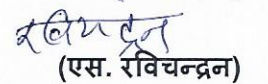 रविचन्द्रन
(एस. रविचन्द्रन)